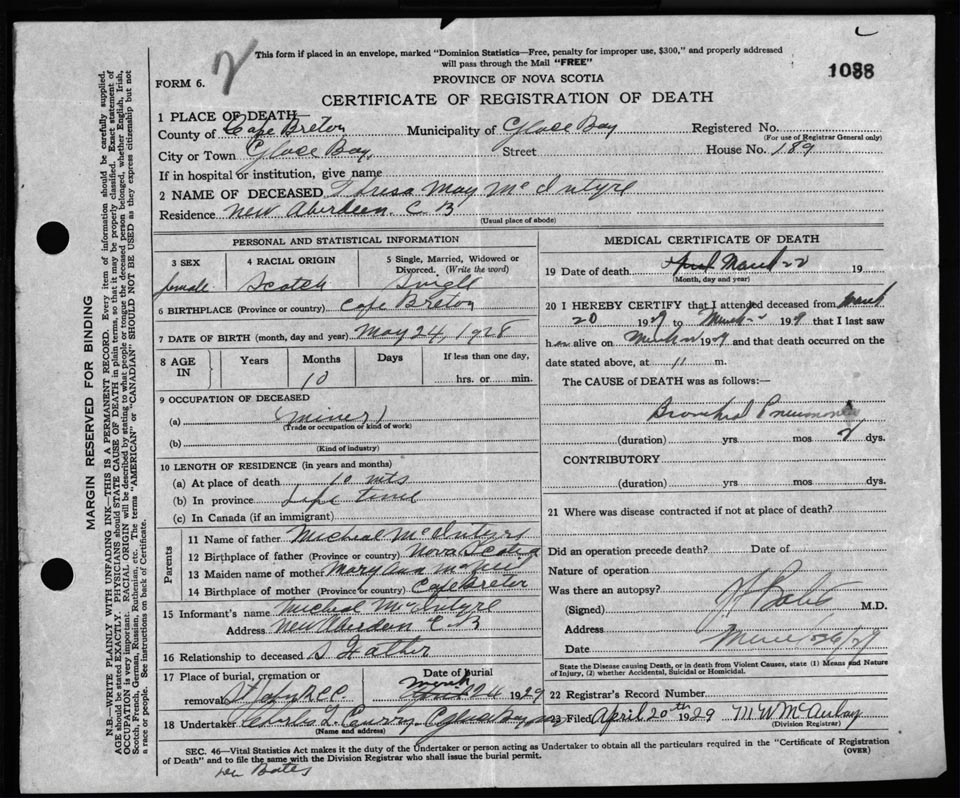 This form if placed in an envelope, marked "Dominion Statistics—Free, penalty for improper use, $300," and properly addressed
will pass through the Mail "FREE"
FORM 6. 2
PROVINCE OF NOVA SCOTIA
1088
CERTIFICATE OF REGISTRATION OF DEATH
1 PLACE OF DEATH
County of Cape Breton Municipality of Glace Bay Registered No.
(For use of Registrar General only)
City or Town Glace Bay, Street House No. 189
If in hospital or institution, give name
2 NAME OF DECEASED Thresa May McIntyre
Residence New Aberdeen. C. B
(Usual place of abode)
PERSONAL AND STATISTICAL INFORMATION
3 SEX female
4 RACIAL ORIGIN Scotch
5 Single, Married, Widowed or
Divorced. (Write the word)
Single
6 BIRTHPLACE (Province or country) Cape Breton
7 DATE OF BIRTH (month, day and year) May 24, 1928
8 AGE IN Years Months Days If less than one day,
10 hrs. or min.
9 OCCUPATION OF DECEASED
(a) Miner
(Trade or occupation or kind of work)
(b)
(Kind of industry)
10 LENGTH OF RESIDENCE (in years and months)
(a) At place of death 10 mts
(b) In province Life time
(c) In Canada (if an immigrant)
Parents
11 Name of father Micheal McIntyre
12 Birthplace of father (Province or country) Nova Scotia
13 Maiden name of mother Mary Ann
14 Birthplace of mother (Province or country) Cape Breton
15 Informant's name Micheal McIntyre
Address New Aberdeen C. B
16 Relationship to deceased Father
17 Place of burial, cremation or Date of burial
removal March 24 1929
18 Undertaker Charles L Curry Glace Bay
(Name and address)
MEDICAL CERTIFICATE OF DEATH
19 Date of death March 22 19
(Month, day and year)
20 I HEREBY CERTIFY that I attended deceased from March
20 1929 to March 1929 that I last saw
h alive on March 1929 and that death occurred on the
date stated above, at 11 m.
The CAUSE of DEATH was as follows:—
Bronchial Pneumonia
(duration) yrs. mos 2 dys.
CONTRIBUTORY
(duration) yrs. mos. dys.
21 Where was disease contracted if not at place of death?
Did an operation precede death? Date of
Nature of operation
Was there an autopsy?
(Signed) M.D.
Address
Date
State the Disease causing Death, or in death from Violent Causes, state (1) Means and Nature
of Injury, (2) whether Accidental, Suicidal or Homicidal.
22 Registrar's Record Number
23 Filed April 20th 1929 M W McAulay
(Division Registrar)
SEC. 46—Vital Statistics Act makes it the duty of the Undertaker or person acting as Undertaker to obtain all the particulars required in the "Certificate of Registration
of Death" and to file the same with the Division Registrar who shall issue the burial permit. (OVER)
Dr Bates
MARGIN RESERVED FOR BINDING
N.B.—WRITE PLAINLY WITH UNFADING INK—THIS IS A PERMANENT RECORD. Every item of information should be carefully supplied.
AGE should be stated EXACTLY. PHYSICIANS should STATE CAUSE OF DEATH in plain terms, so that it may be properly classified. Exact statement of
OCCUPATION is very important. RACIAL ORIGIN will be described by stating to what people or tongue the deceased person belonged, whether English, Irish,
Scotch, French, German, Russian, Ruthenian, etc. The terms "AMERICAN" or "CANADIAN" SHOULD NOT BE USED as they express citizenship but not
a race or people. See instructions on back of Certificate.